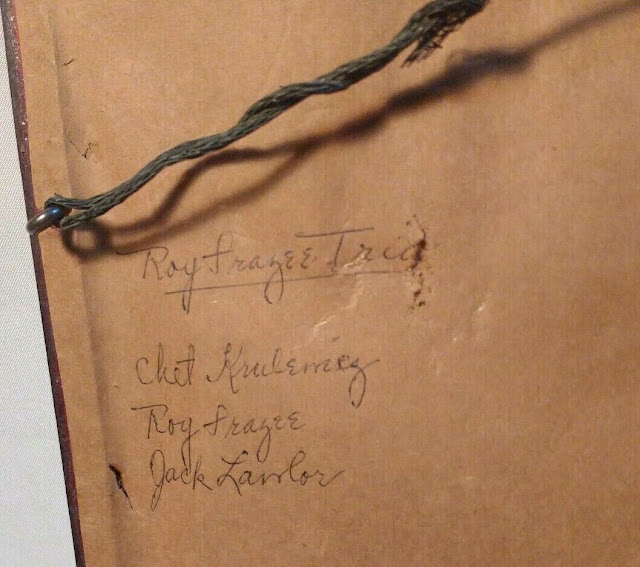 Roy Frazee Trio
Chet Krulewicz
Roy Frazee
Jack Lawlor